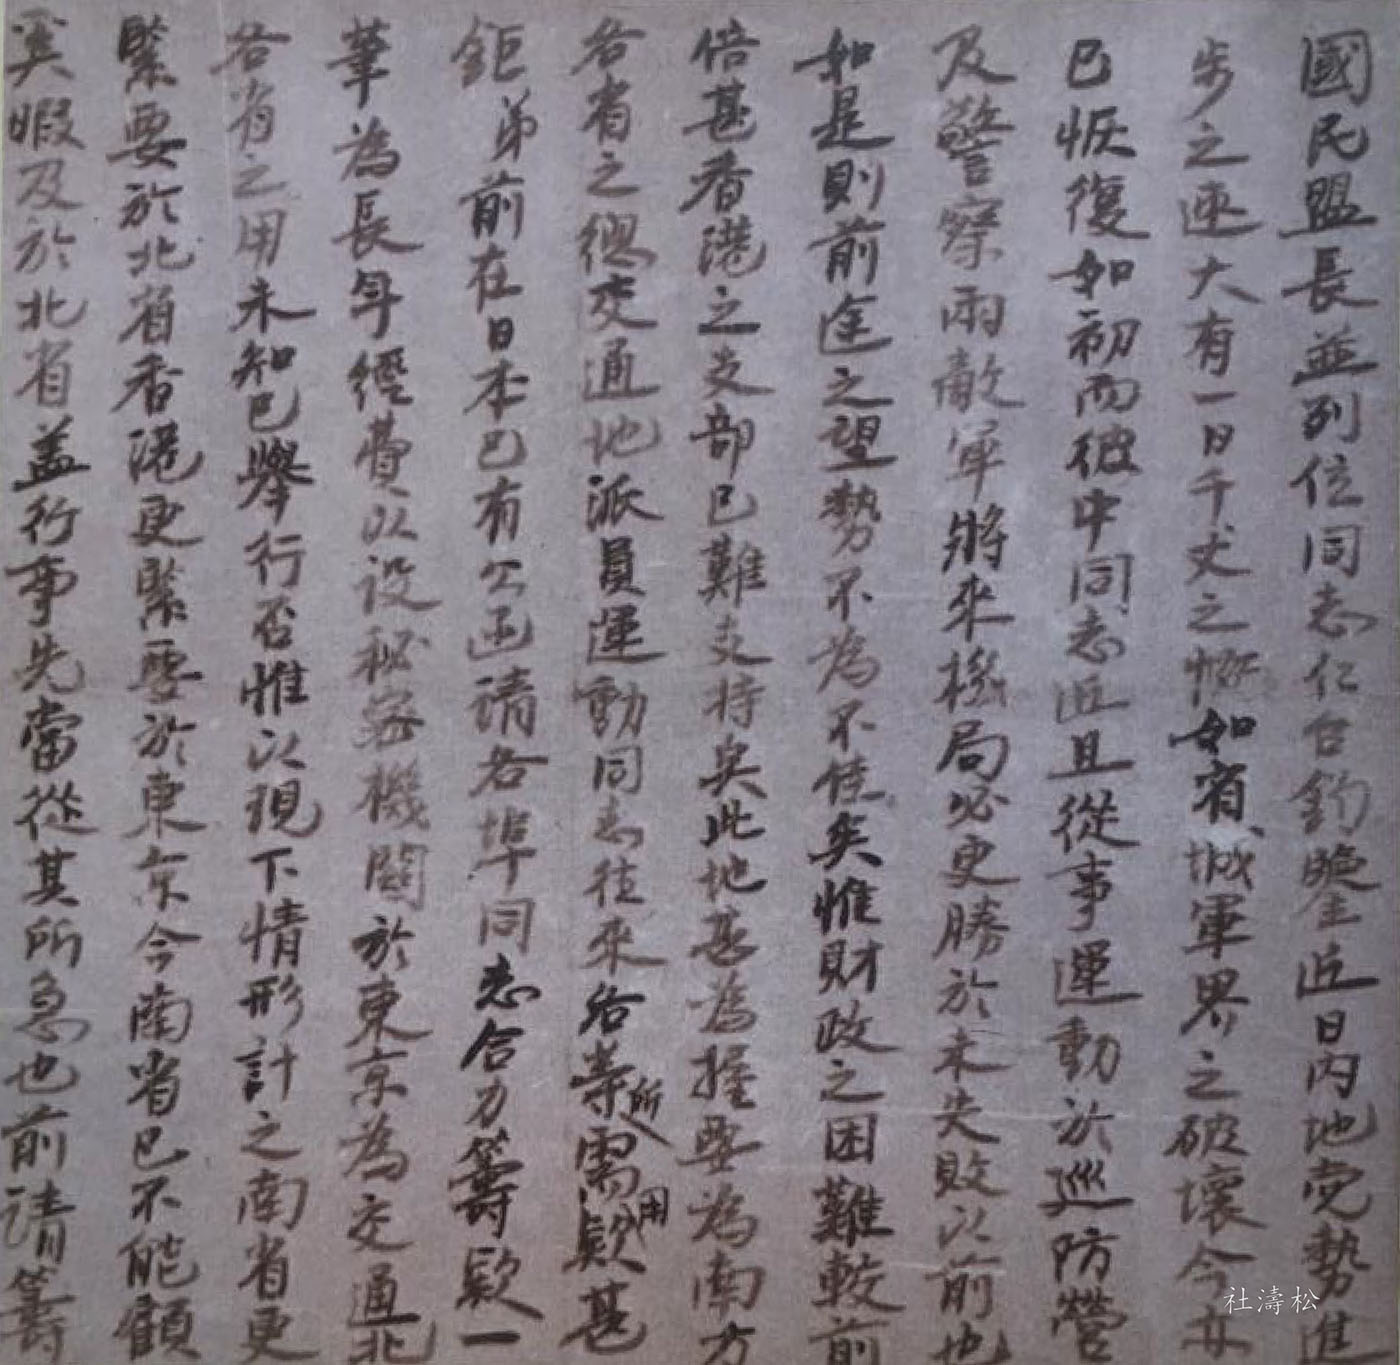 國民盟長並列位同志仁台鈞鑒近日內地党勢進
步之速大有一日千丈之慨如省城軍界之破壞今亦
已恢復如初而彼中同志近且從事運動於巡防營
及警察兩敵軍將來機局必更勝於未失敗以前也
如是則前途之望勢不為不佳矣惟財政之困難較前
倍甚香港之支部已難支持矣此地甚為握要為南方
各省之總交通地派員運動同志往來各等所需用款甚
鉅弟前在日本已有公函請各埠同志合力籌款一
筆為長年經費以設秘密機關於東京為交通北
各省之用未知已舉行否惟以現下情形計之南省更
緊要於北省香港更緊要於東京今南省已不能顧
奚暇及於北省蓋行事先當從其所急也前請籌
社濤松